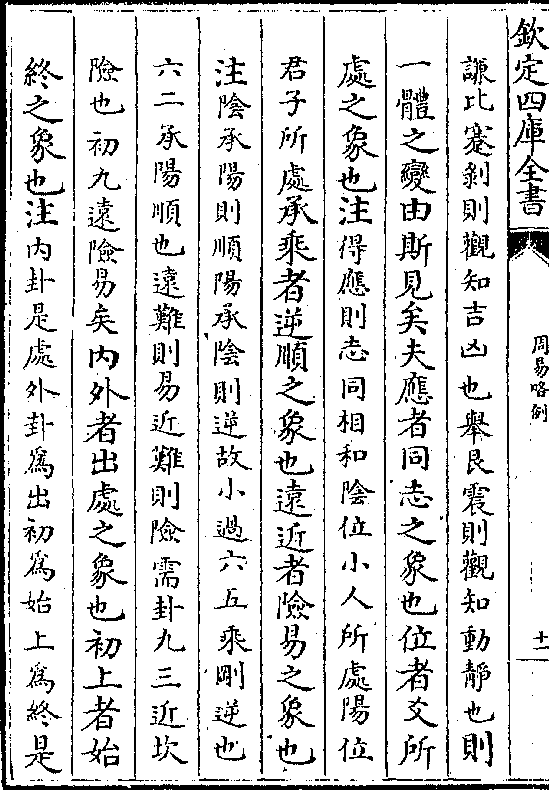 欽定四庫全書
周易略例
十一
謙比蹇剝則觀知吉凶也舉艮震則觀知動靜也則
一體之變由斯見矣夫應者同志之象也位者爻所
處之象也注得應則志同相和陰位小人所處陽位
君子所處承乘者逆順之象也遠近者險易之象也
注陰承陽則順陽承陰則逆故小過六五乘剛逆也
六二承陽順也遠難則易近難則險需卦九三近坎
險也初九遠險易矣內外者出處之象也初上者始
終之象也注內卦是處外卦為出初為始上為終是